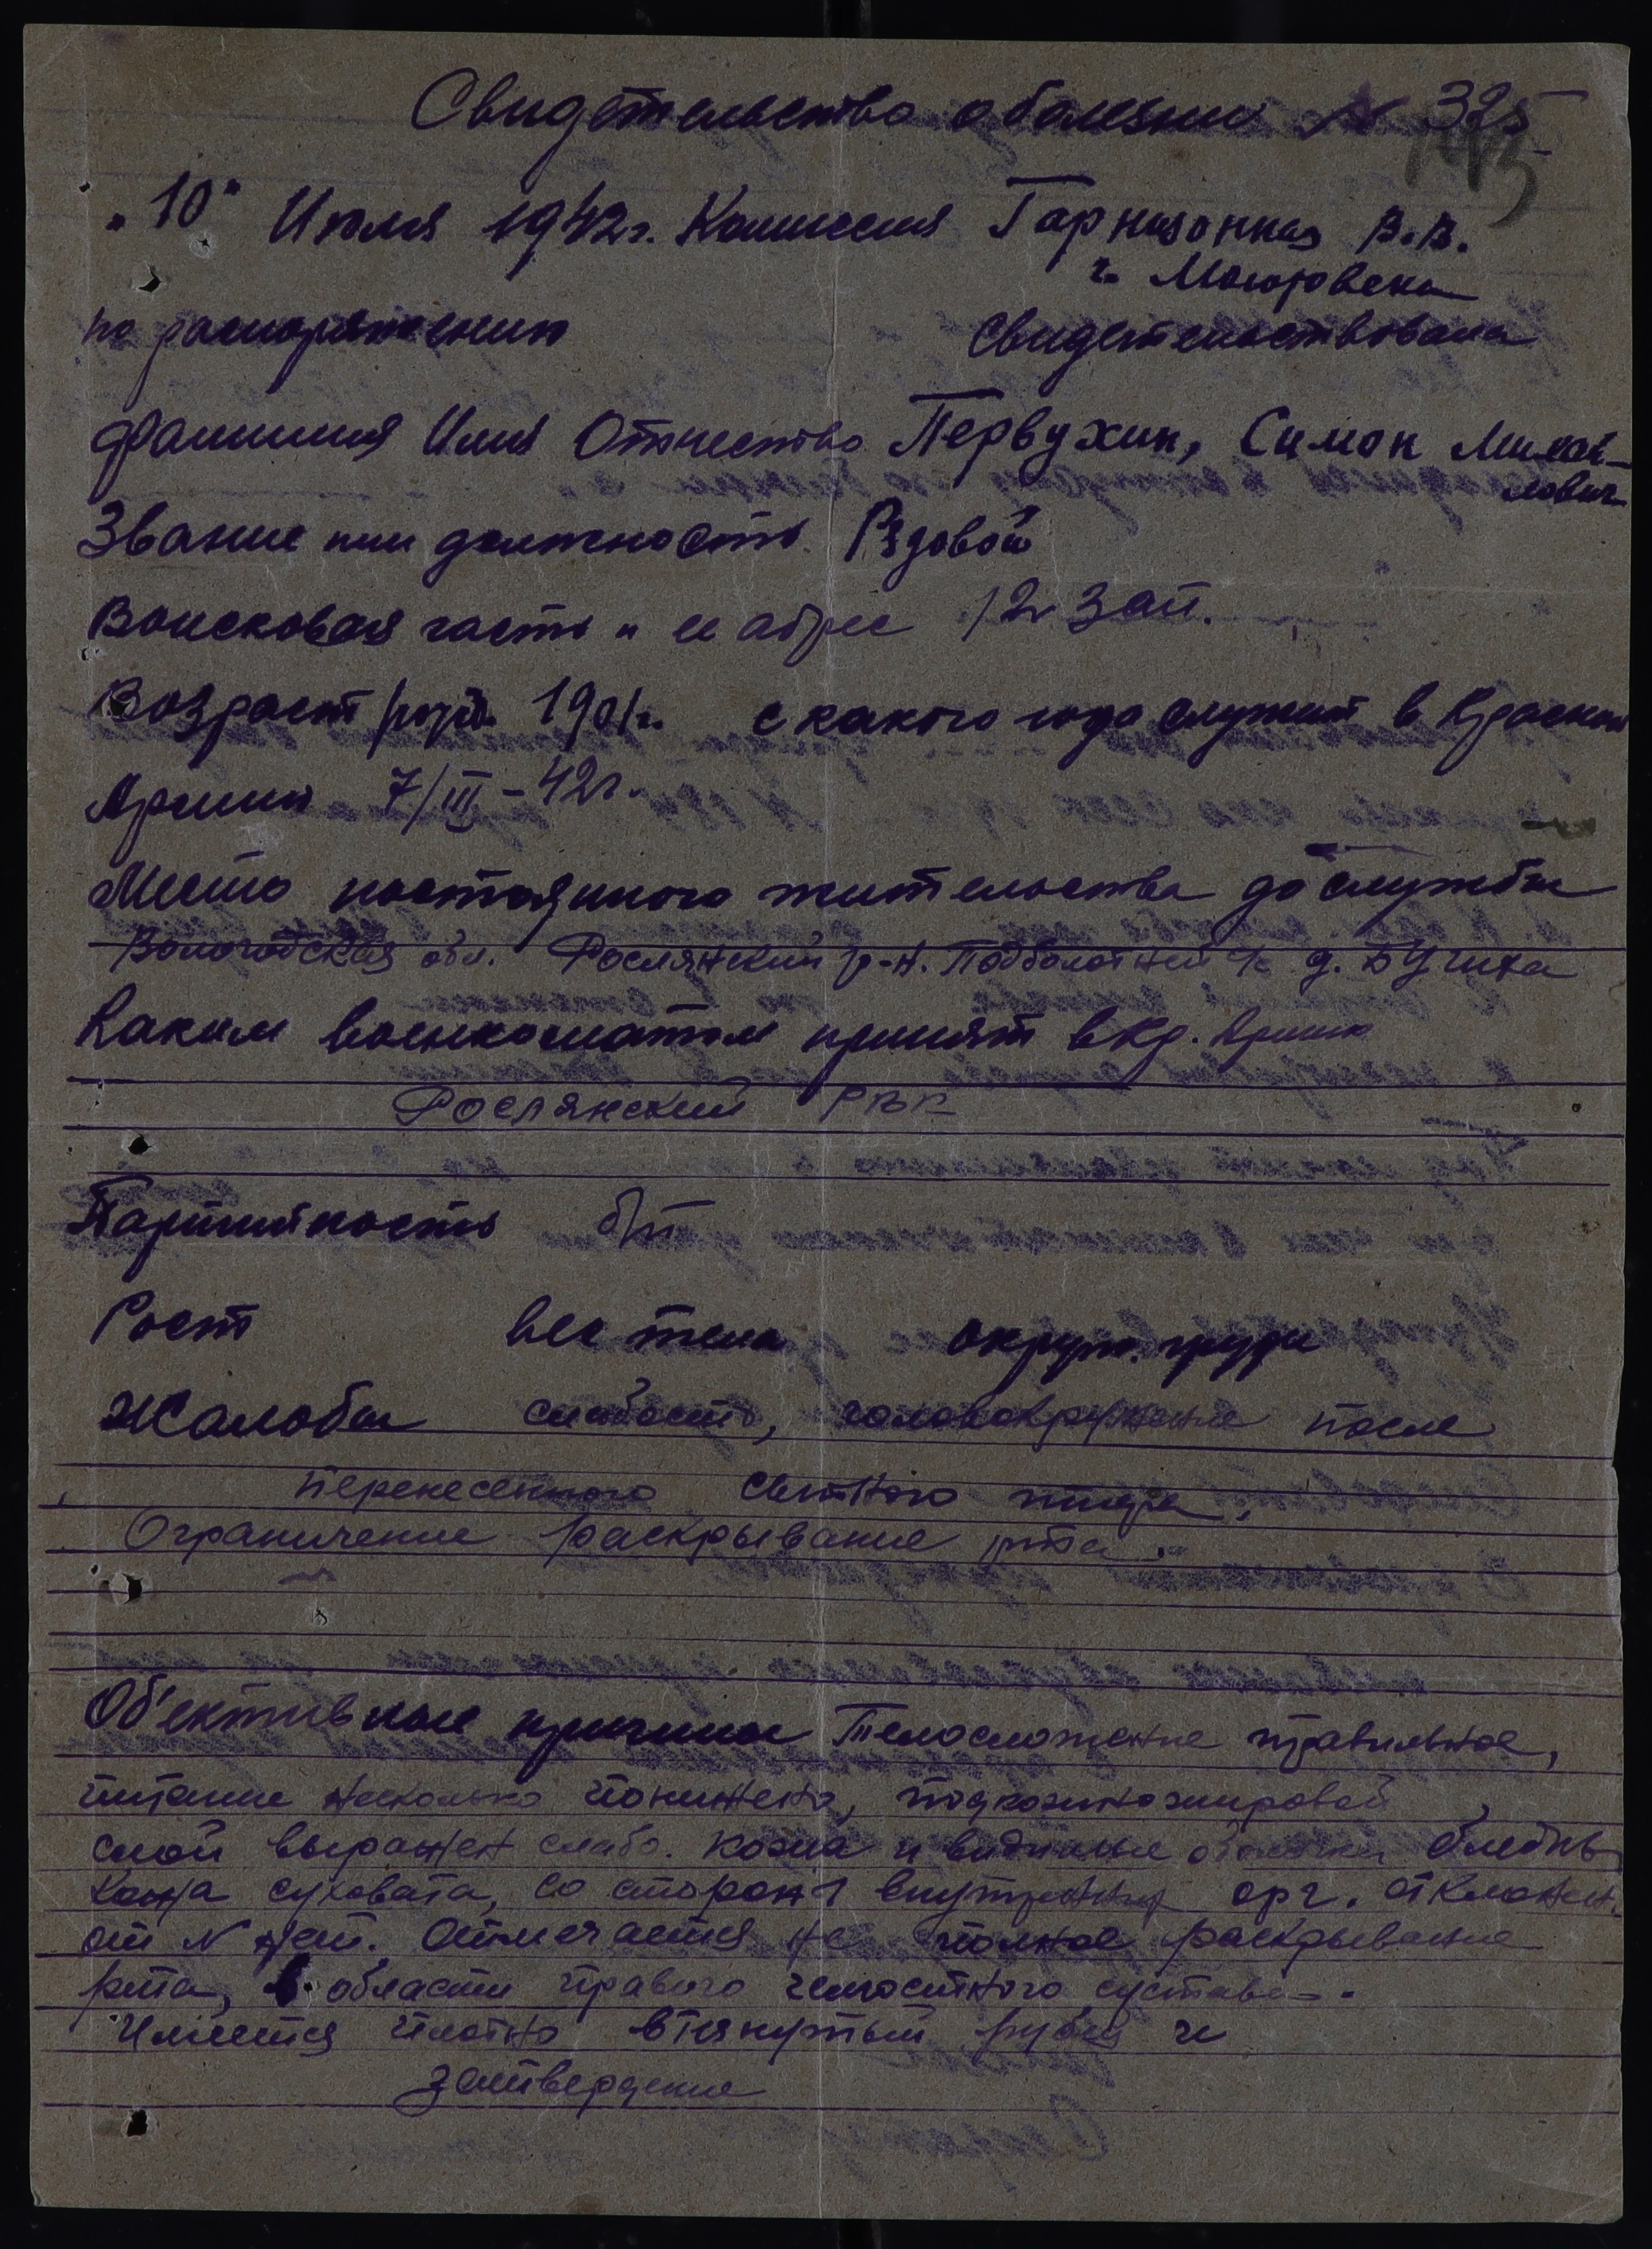 Свидетельство о болезни № 325
„10“ Июля 1942г. Комиссия Гарнизонная В.В.
г.
по распоряжению свидетельствовала
Фамилия Имя Отчество Первухин, Симон Михай-
лович
Звание или должность Рядовой
Воисковая часть и ее адрес 12 зап.
Возраст рожд. 1901г. с какого года служит в Красной
Армии 7/III-42г.
Место постоянного жительства до службы
Вологодская обл. Рослянский р-н. Подболотный с/с д.
Каким военкоматом принят в Кр. Армию
Рослянский РВК
Партийность б/п
Рост вес тела окруж. груди
Жалобы слабость, головокружение после
перенесенного сыпного тифа.
Ограничение раскрывание рта.
Об'ективные причины Телосложение правильное,
питание несколько понижено, подкожножировой
слой выражен слабо. Кожа и видимые оболочки бледны
Кожа суховата, со стороны внутренних орг. отклонен.
от N нет. Отмечается не полное раскрывание
рта, в области правого челюстного сустава -.
Имеется плотно втянутый рубец и
затвердение